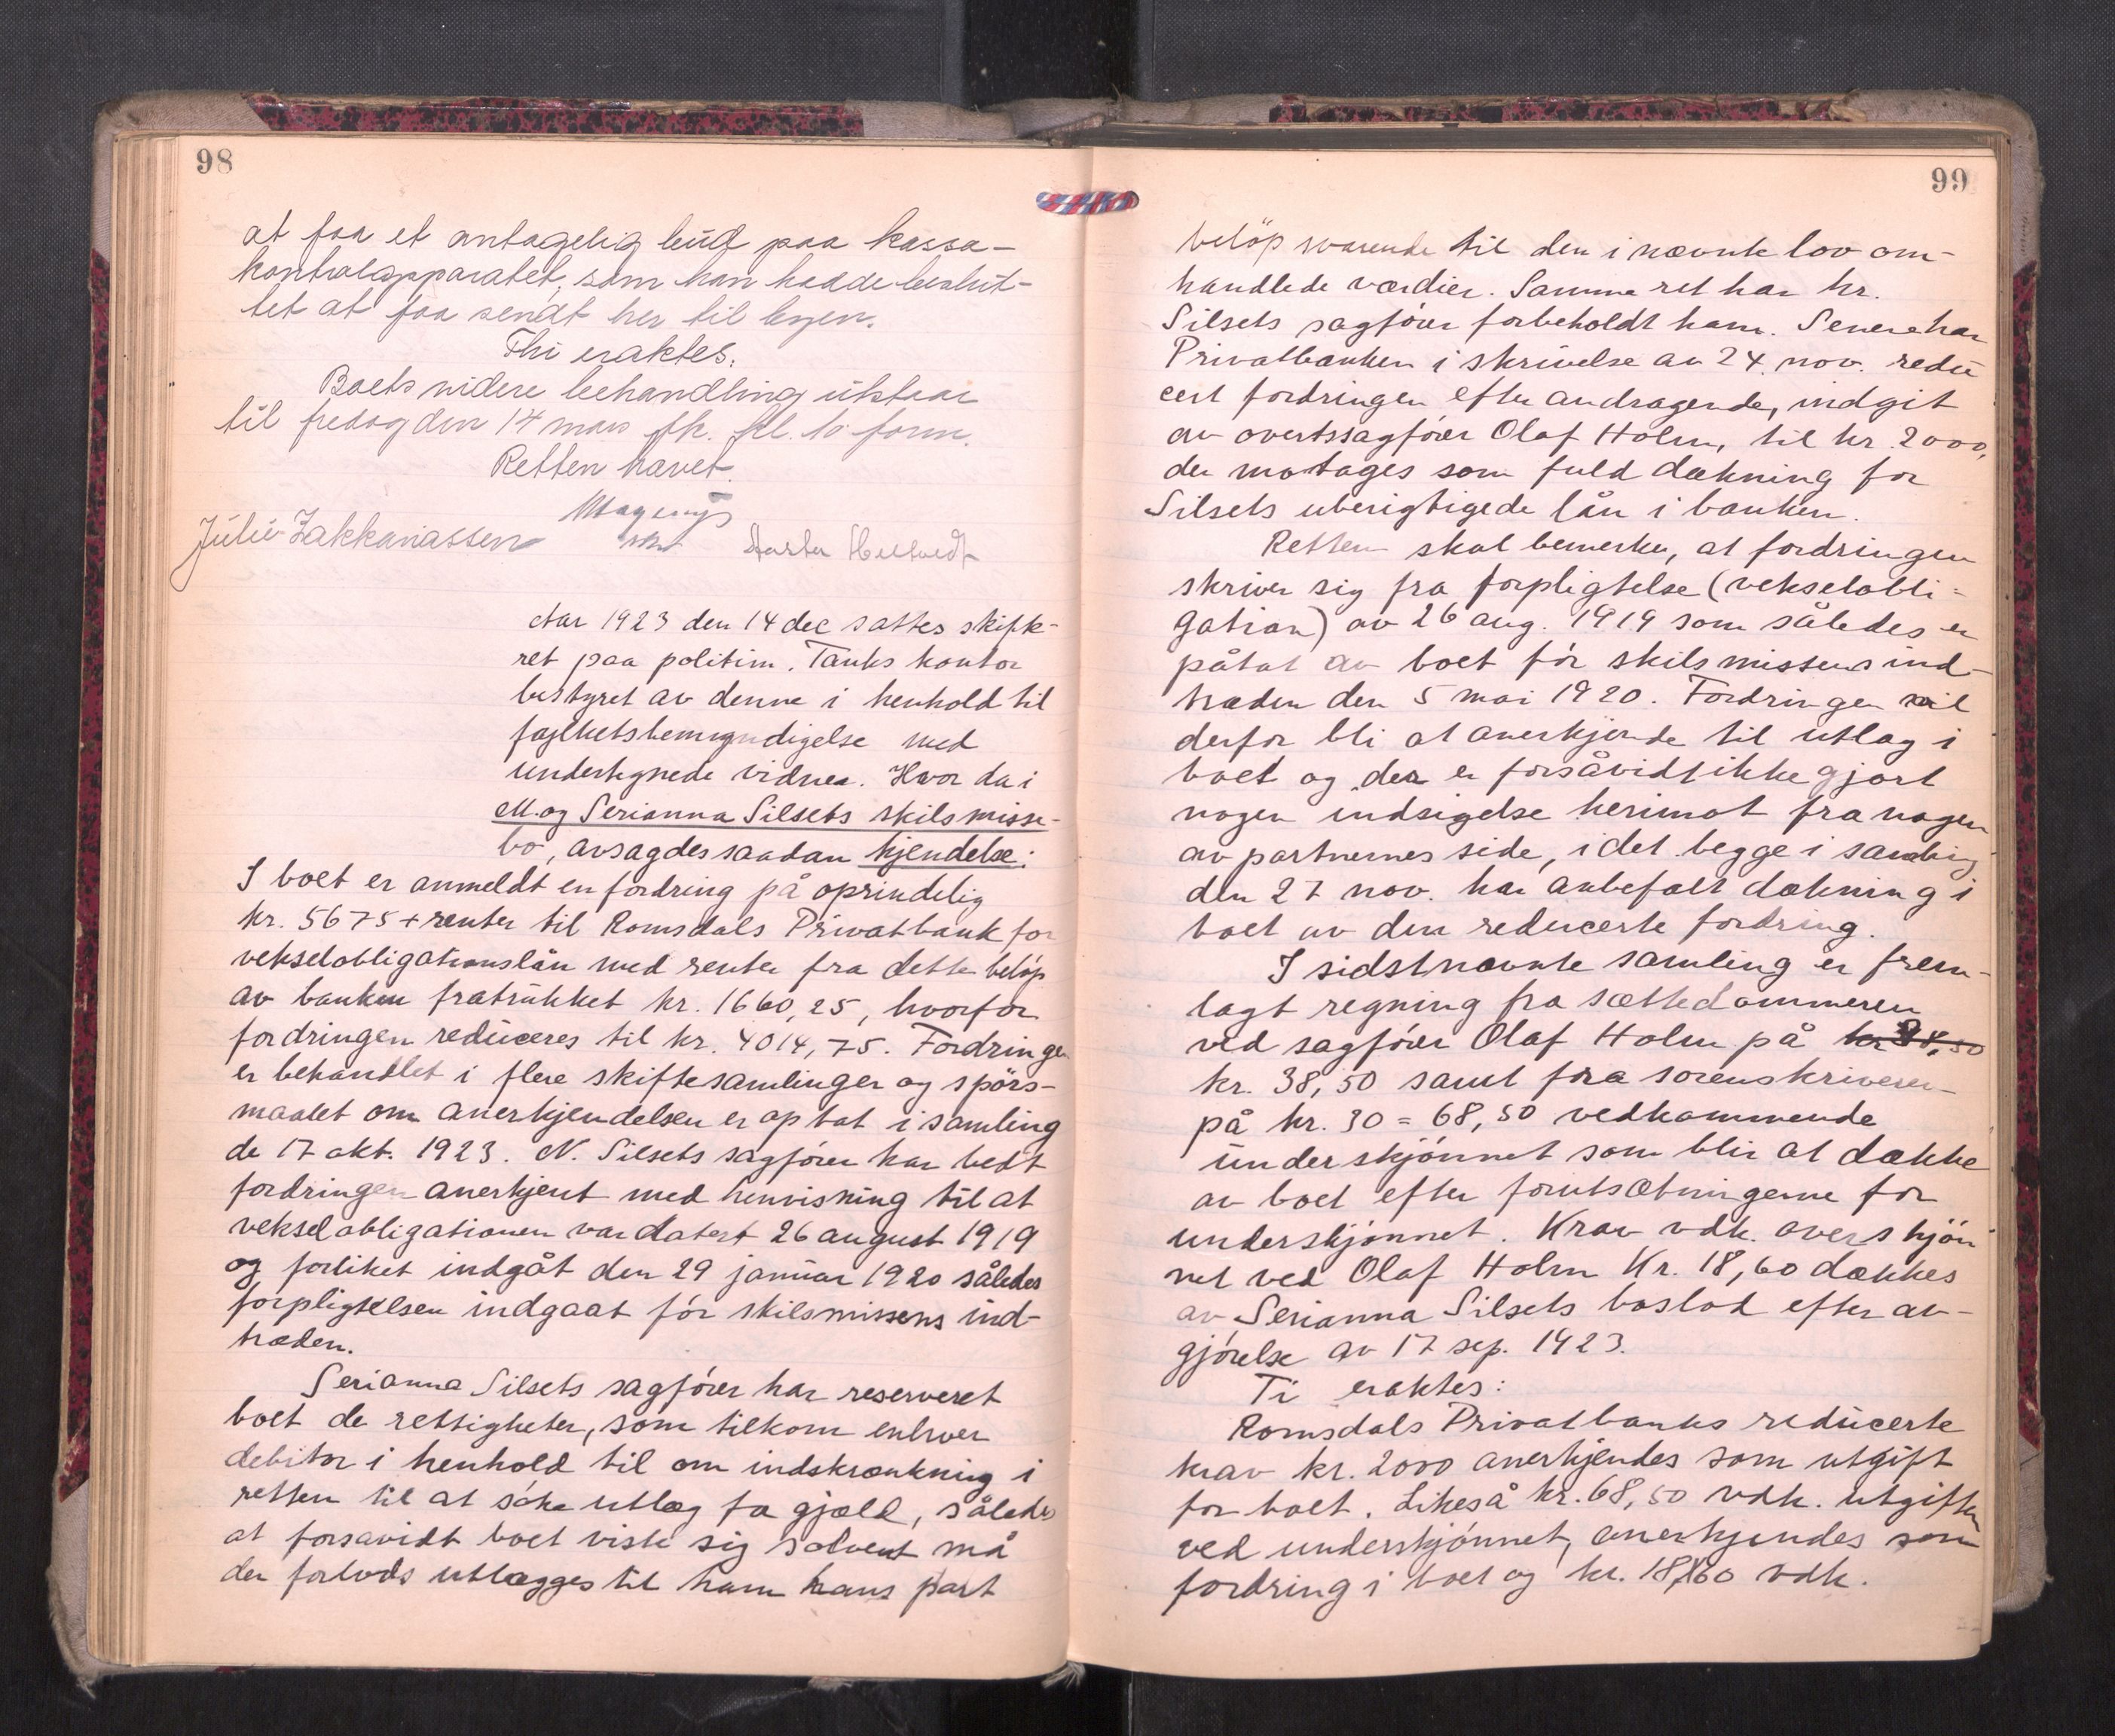 98
at faa et antagelig bud paa kassa-
kontrolapparatet, som han hadde beslut-
tet at faa sendt her til byen.
Thi eraktes:
Boets videre behandling utstaar
til fredag den 14 mars fk. kl. 10 form.
Retten hævet.
Julie Zakkariassen
Aar 1923 den 14 dec sattes skifte-
ret paa politim. Tanks kontor
bestyret av denne i henhold til
undertegnede vidner. Hvor da i
M. og Serianna Silsets skilsmisse-
bo, avsagdes saadan kjendelse:
I boet er anmeldt en fordring på oprindelig
kr. 5675 + renter til Romsdals Privatbank for
vekselobligationslån med renter fra dette beløp
av banken fratrukket kr. 1660,25, hvorfor
fordringen reduceres til kr. 4014,75. Fordringen
er behandlet i flere skiftesamlinger og spörs-
maalet om anerkjendelsen er optat i samling
de 17 okt. 1923. N. Silsets sagförer har bedt
fordringen anerkjent med henvisning til at
vekselobligationen var datert 26 august 1919
og forliket indgåt den 29 januar 1920 således
forpligtelsen indgaat för skilsmissens ind-
træden.
Serianna Silsets sagförer har reserveret
boet de rettigheter, som tilkom enhver
debitor i henhold til om indskrænkning i
retten til at söke utlæg fo gjæld, således
at forsavidt boet viste sig solvent må
der forlods utlægges til ham hans part
99
belöp svarende til den i nævnte lov om-
handlede værdier. Samme ret har hr.
Silsets sagförer forbeholdt ham. Senere har
Privatbanken i skrivelse av 24. nov. redu
cert fordringen efter andragende, indgit
av overtssagförer Olaf Holm, til kr. 2000,
der motages som fuld dækning for
Silsets uberigtigede lån i banken.
Retten skal bemerke, at fordringen
skriver sig fra forpligtelse (vekselobli-
gation) av 26 aug. 1919 som således er
påtat av boet för skilsmissens ind-
træden den 5 mai 1920. Fordringen vil
derfor bli at anerkjende til utlæg i
boet og der er forsåvidt ikke gjort
nogen indsigelse herimot fra nogen
av partnernes side, idet begge i samling
den 27 nov. har anbefalt dækning i
boet av den reducerte fordring.
I sidstnævnte samling er frem-
lagt regning fra sættedommeren
ved sagförer Olaf Holm på kr 38,50
kr. 38,50 samt fra sorenskriveren
på kr. 30 = 68,50 vedkommende
underskjönnet som blir at dække
av boet efter forutsætningerne for
underskjönnet. Krav vdk. overskjön
net ved Olaf Holm Kr. 18,60 dækkes
av Serianna Silsets boslod efter av-
gjörelse av 17 sep. 1923.
Ti eraktes:
Romsdals Privatbanks reducerte
krav kr. 2000 anerkjendes som utgift
for boet. Likeså kr. 68,50 vdk. utgiften
ved underskjönnet, anerkjendes som
fordring i boet og kr. 18,60 vdk.